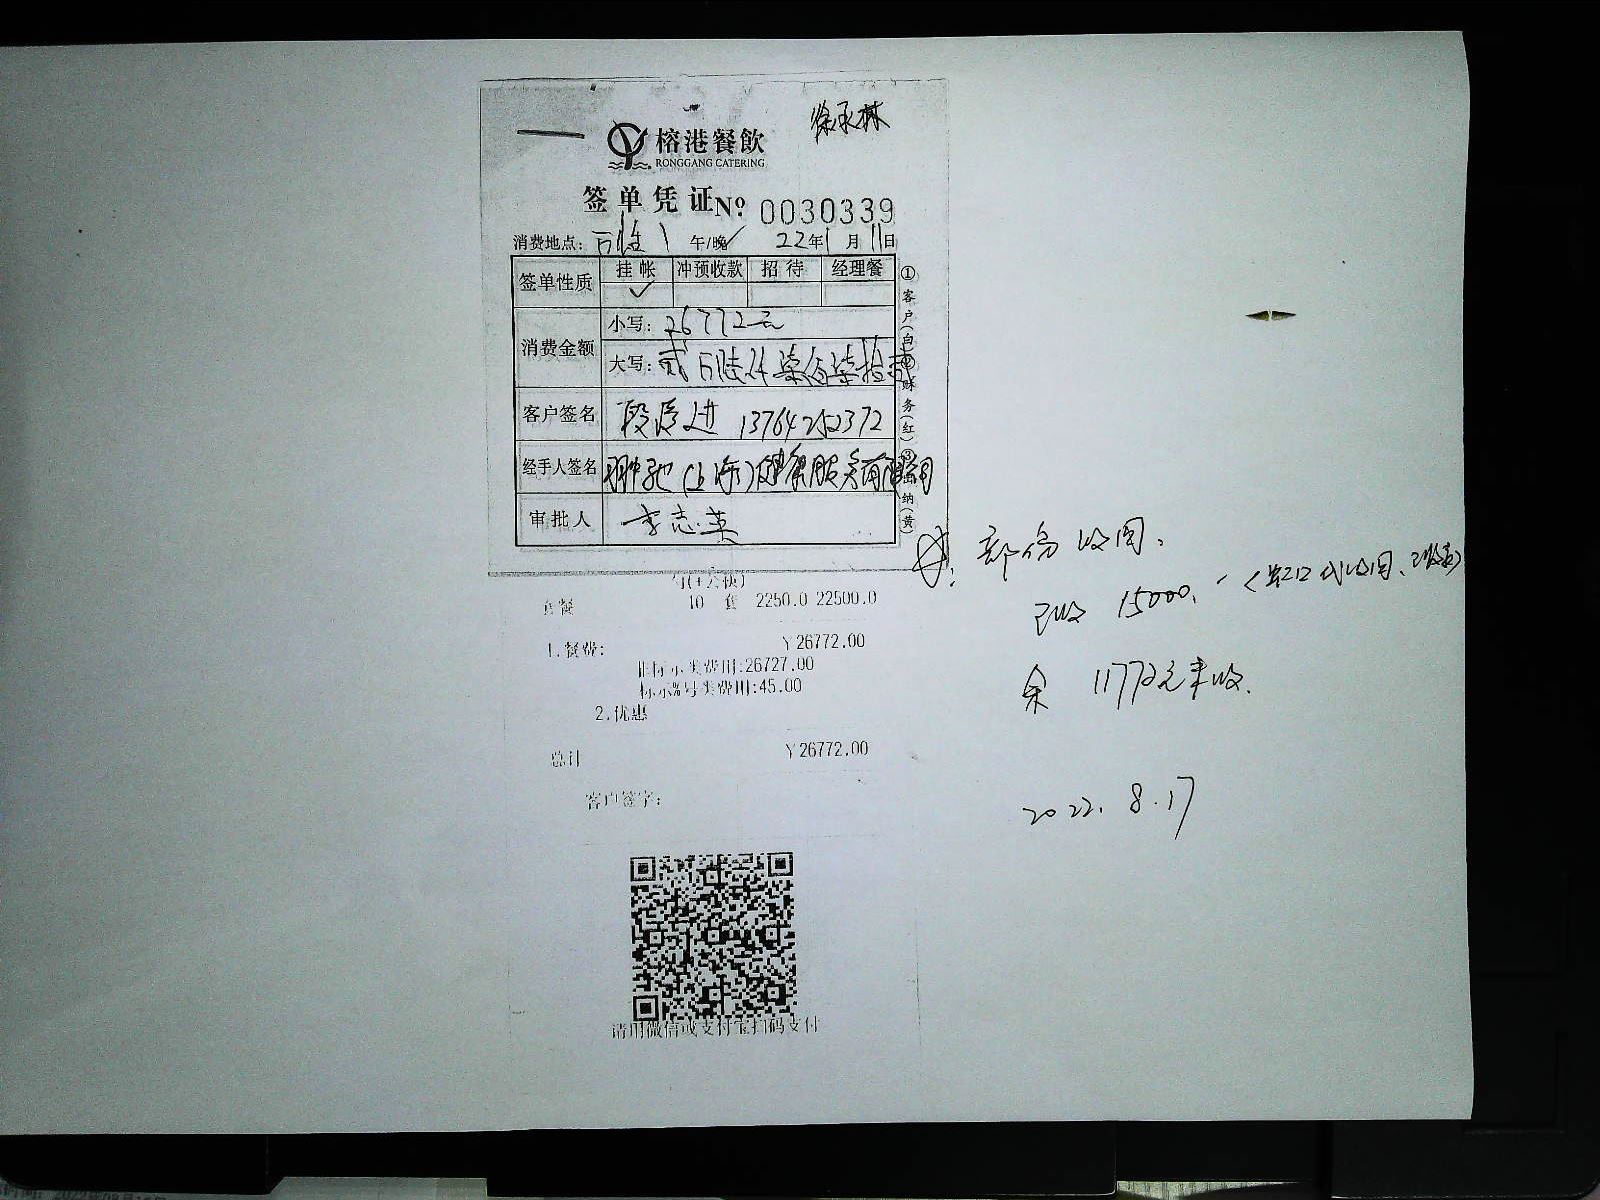 榕港餐飲
RONGGANG CATERING
签单凭证 № 0030339
消费地点: 午/晚✓ 22年1月11日
签单性质 挂帐 冲预收款 招待 经理餐
✓
消费金额 小写: 26772元
大写: 贰万陆仟柒佰柒拾贰
客户签名 13764252372
经手人签名 (上海)健康服务有限公司
审批人 李志英
①客户(白)②财务(红)③出纳(黄)
部份收回、
已收 15000.
余 11772元未收.
2022.8.17
套餐 10 套 2250.0 22500.0
1.餐费: ¥26772.00
非标示类费用:26727.00
标示类费用:45.00
2.优惠
总计 ¥26772.00
客户签字:
请用微信或支付宝扫码支付